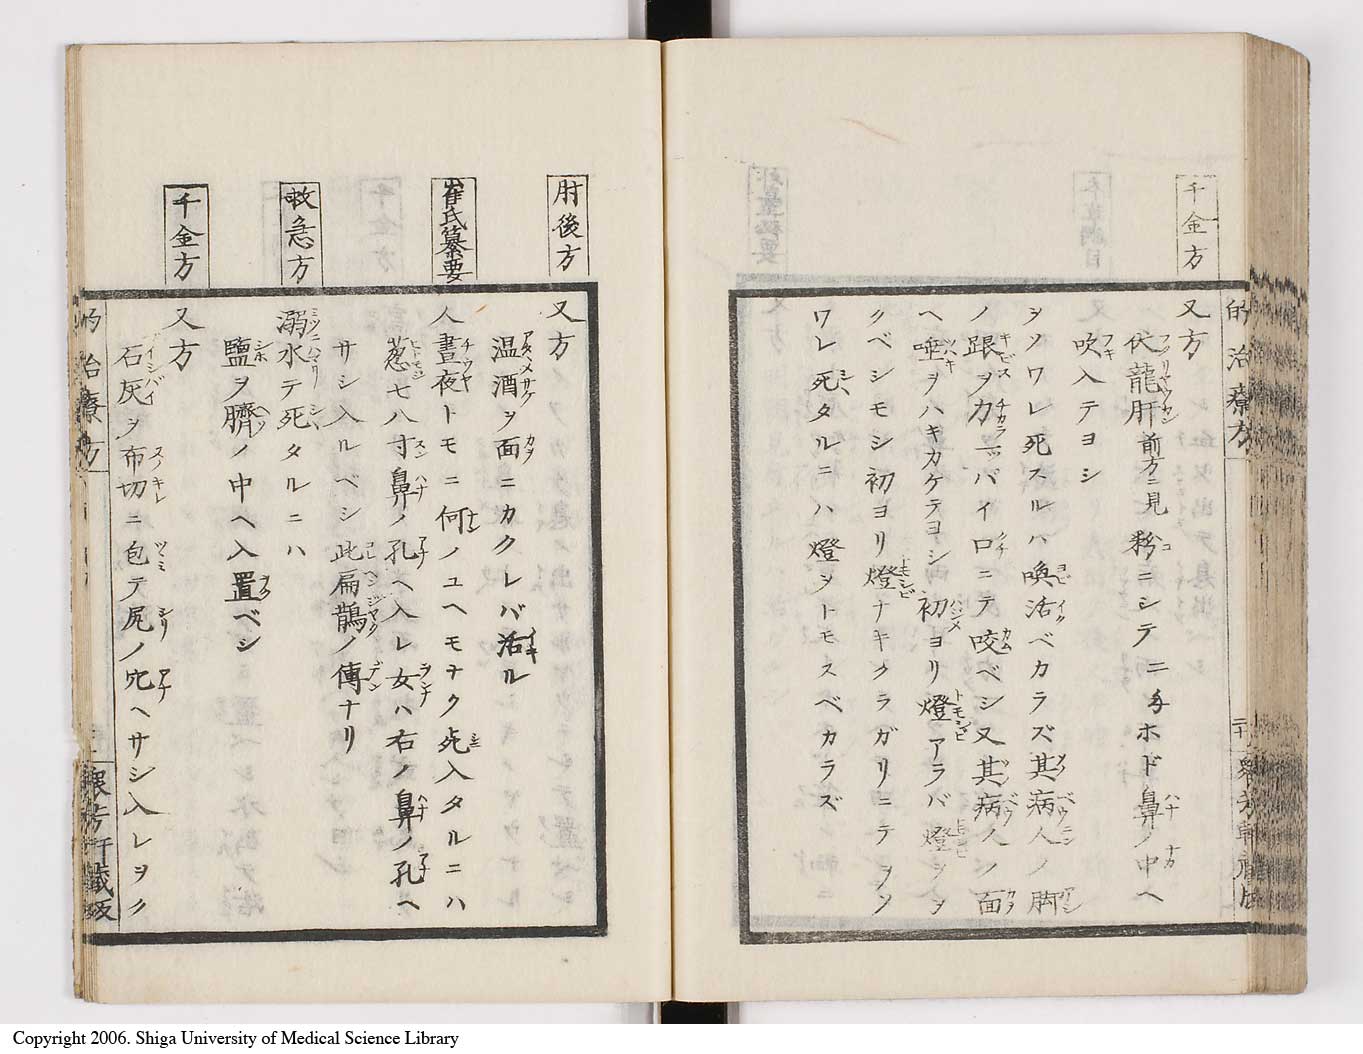 千金方
又方
伏龍肝前方ニ見粉ニシテ二匁ホド鼻ノ中ヘ
吹入テヨシ
ヲソワレ死スルハ喚活ベカラズ其病人ノ脚
ノ跟ヲ力一ハイ口ニテ咬ベシ又其病人ノ面
ヘ唾ヲハキカケテヨシ初ヨリ燈アラバ燈シヲ
クベシモシ初ヨリ燈ナキクラガリニテヲソ
ワレ死タルニハ燈ヲトモスベカラズ
的治療方
肘後方
又方
温酒ヲ面ニカクレバ活ル
崔氏纂要
人晝夜トモニ何ノユヘモナク死入タルニハ
葱七八寸鼻ノ孔ヘ入レ女ハ右ノ鼻ノ孔ヘ
サシ入ルベシ此扁鵲ノ傳ナリ
救急方
溺水テ死タルニハ
鹽ヲ臍ノ中ヘ入置ベシ
千金方
又方
石灰ヲ布切ニ包テ尻ノ穴ヘサシ入レヲク
的治療方
衆芳軒藏板
Copyright 2006. Shiga University of Medical Science Library